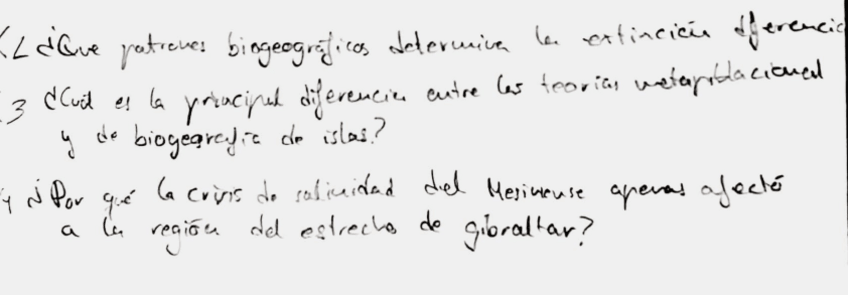 2 ¿Que patrones biogeográficos determina la extinción diferencia
3 ¿Cuál es la principal diferencia entre las teorías metapoblacional
y de biogeografía de islas?
4 ¿Por qué la crisis de salinidad del Mesiniense apenas afectó
a la región del estrecho de gibraltar?